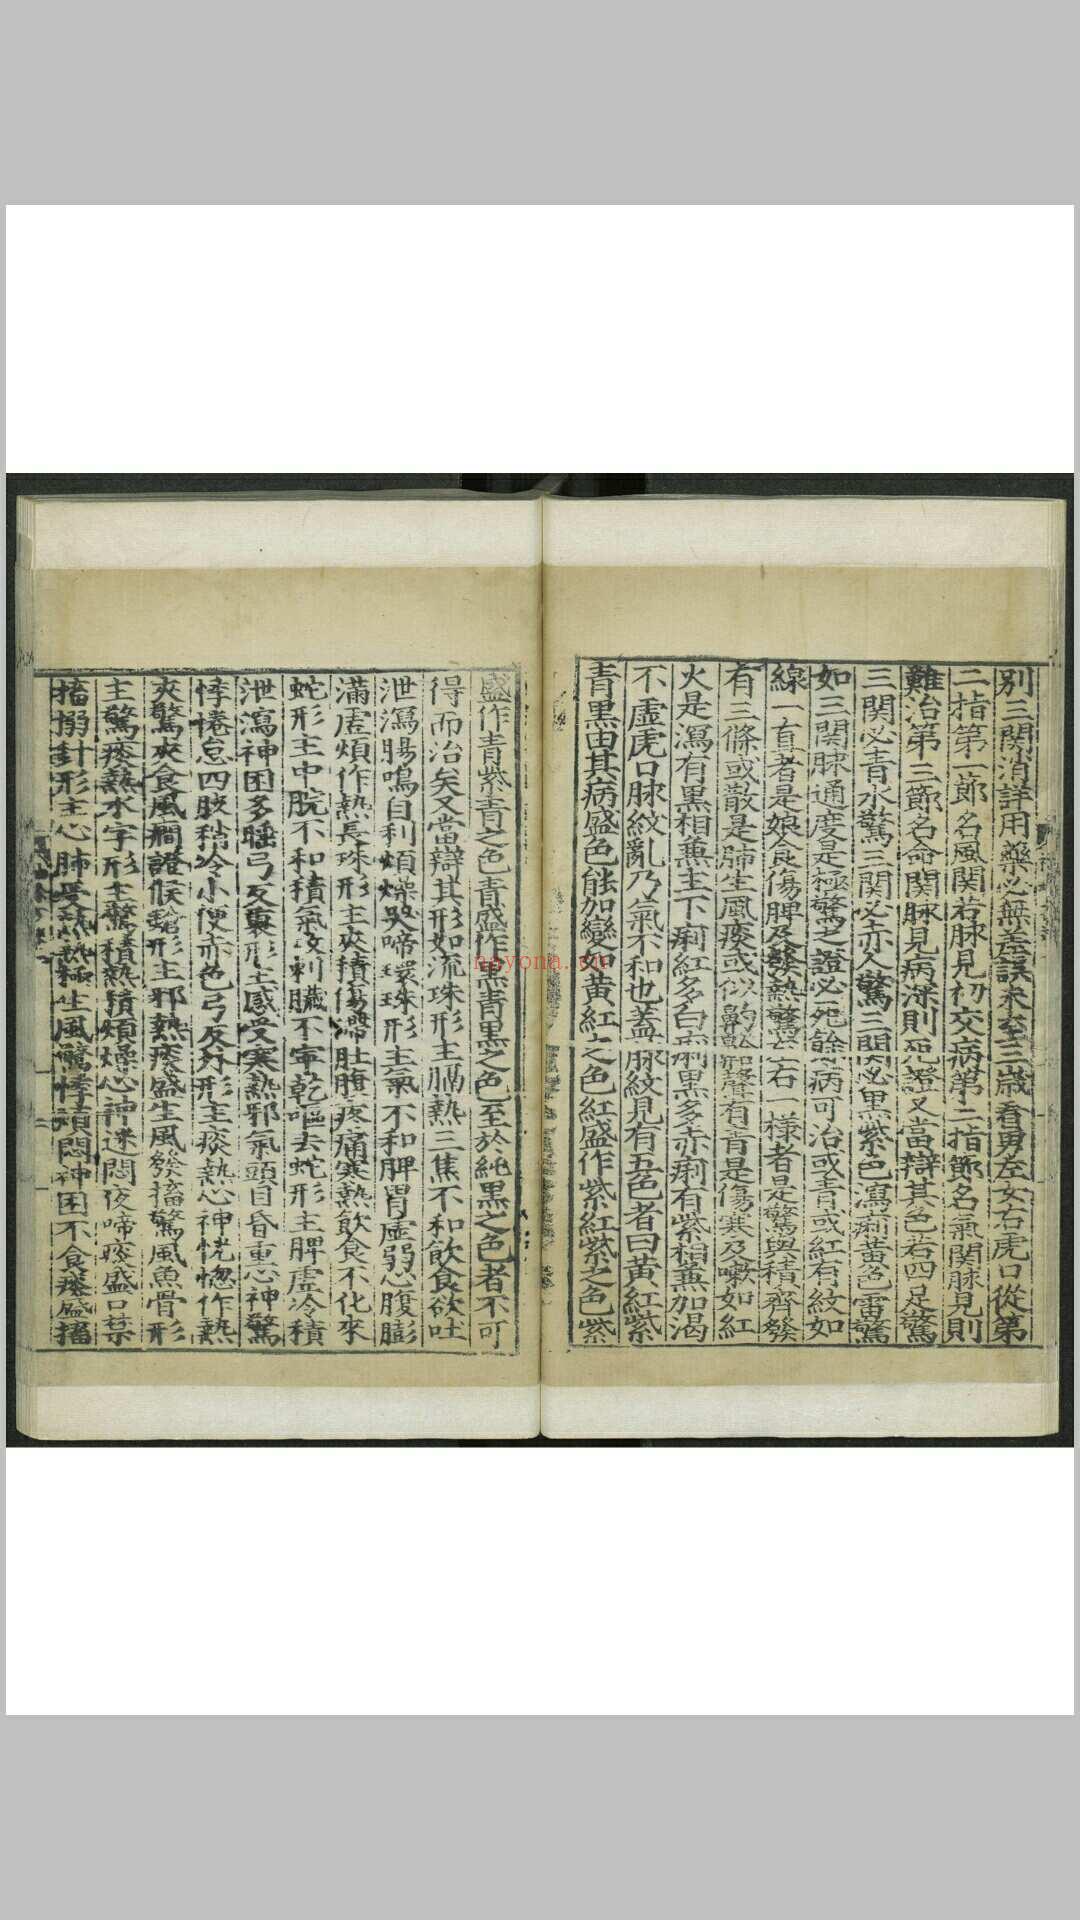 別三関消詳用藥必無差誤未至三歳看男左女右虎口從第
二指第一節名風関若脉見初交病第二指節名氣関脉見則
難治第三節名命関脉見病深則死證又當辯其色若四足驚
三関必青水驚三関必赤人驚三関必黒紫色瀉痢黃色雷驚
如三関脉通度是極驚之證必死餘病可治或青或紅有紋如
線一直者是娘食傷脾及發熱驚左右一様者是驚與積齊發
有三條或散是肺生風痰或似齁𪖙聲有青是傷寒及嗽如紅
火是瀉有黒相兼主下痢紅多白痢黒多赤痢有紫相兼加渴
不虛虎口脉紋亂乃氣不和也蓋脉紋見有五色者曰黃紅紫
青黒由其病盛色能加變如黃紅之色紅盛作紫紅紫之色紫
盛作青紫青之色青盛作黒青黒之色至於純黒之色者不可
得而治矣又當辯其形如流珠形主膈熱三焦不和飲食欲吐
泄瀉腸鳴自利煩燥哭啼環珠形主氣不和脾胃虛弱心腹膨
滿虛煩作熱長珠形主夾積傷滯肚腹疼痛寒熱飲食不化來
蛇形主中脘不和積氣攻刺臟不寧乾嘔去蛇形主脾虛冷積
泄瀉神困多睡弓反裏形主感受寒熱邪氣頭目昏重心神驚
悸捲怠四肢稍冷小便赤色弓反外形主痰熱心神恍惚作熱
夾驚夾食風癇證候鎗形主邪熱痰盛生風發搐驚風魚骨形
主驚痰熱水字形主驚積熱積煩燥心神迷悶夜啼痰盛口禁
搐搦針形主心肺受熱熱極生風驚悸煩悶神困不食痰盛搐
nayona.cn